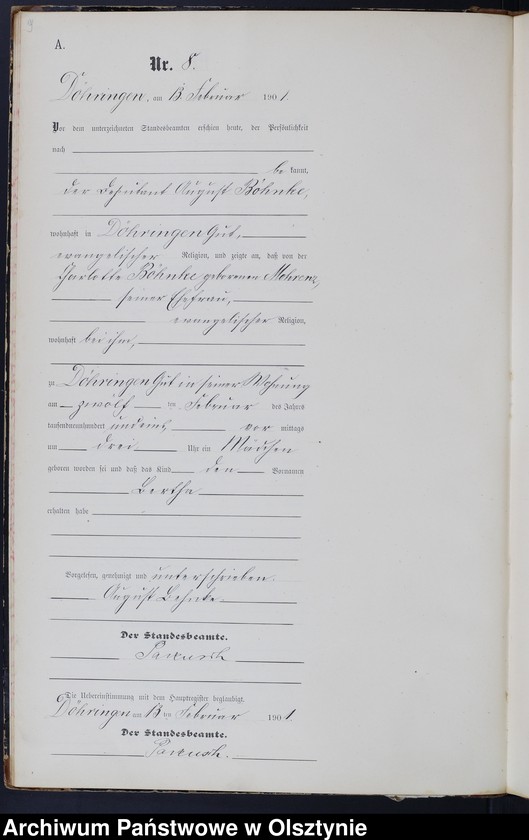 9
A.
Nr. 8.
Döhringen, am 13. Februar 1901.
Vor dem unterzeichneten Standesbeamten erschien heute, der Persönlichkeit
nach
be kannt,
der Deputant August Böhnke,
wohnhaft in Döhringen Gut,
evangelischer Religion, und zeigte an, daß von der
Charlotte Böhnke geborenen
seiner Ehefrau,
evangelischer Religion,
wohnhaft bei ihm,
zu Döhringen Gut in seiner Wohnung
am zwölf ten Februar des Jahres
tausendneunhundert und eins, vor mittags
um drei Uhr ein Mädchen
geboren worden sei und daß das Kind den Vornamen
Bertha
erhalten habe
Vorgelesen, genehmigt und unterschrieben.
August
Der Standesbeamte.
Die Uebereinstimmung mit dem Hauptregister beglaubigt.
Döhringen am 13 ten Februar 1901.
Der Standesbeamte.
Archiwum Państwowe w Olsztynie